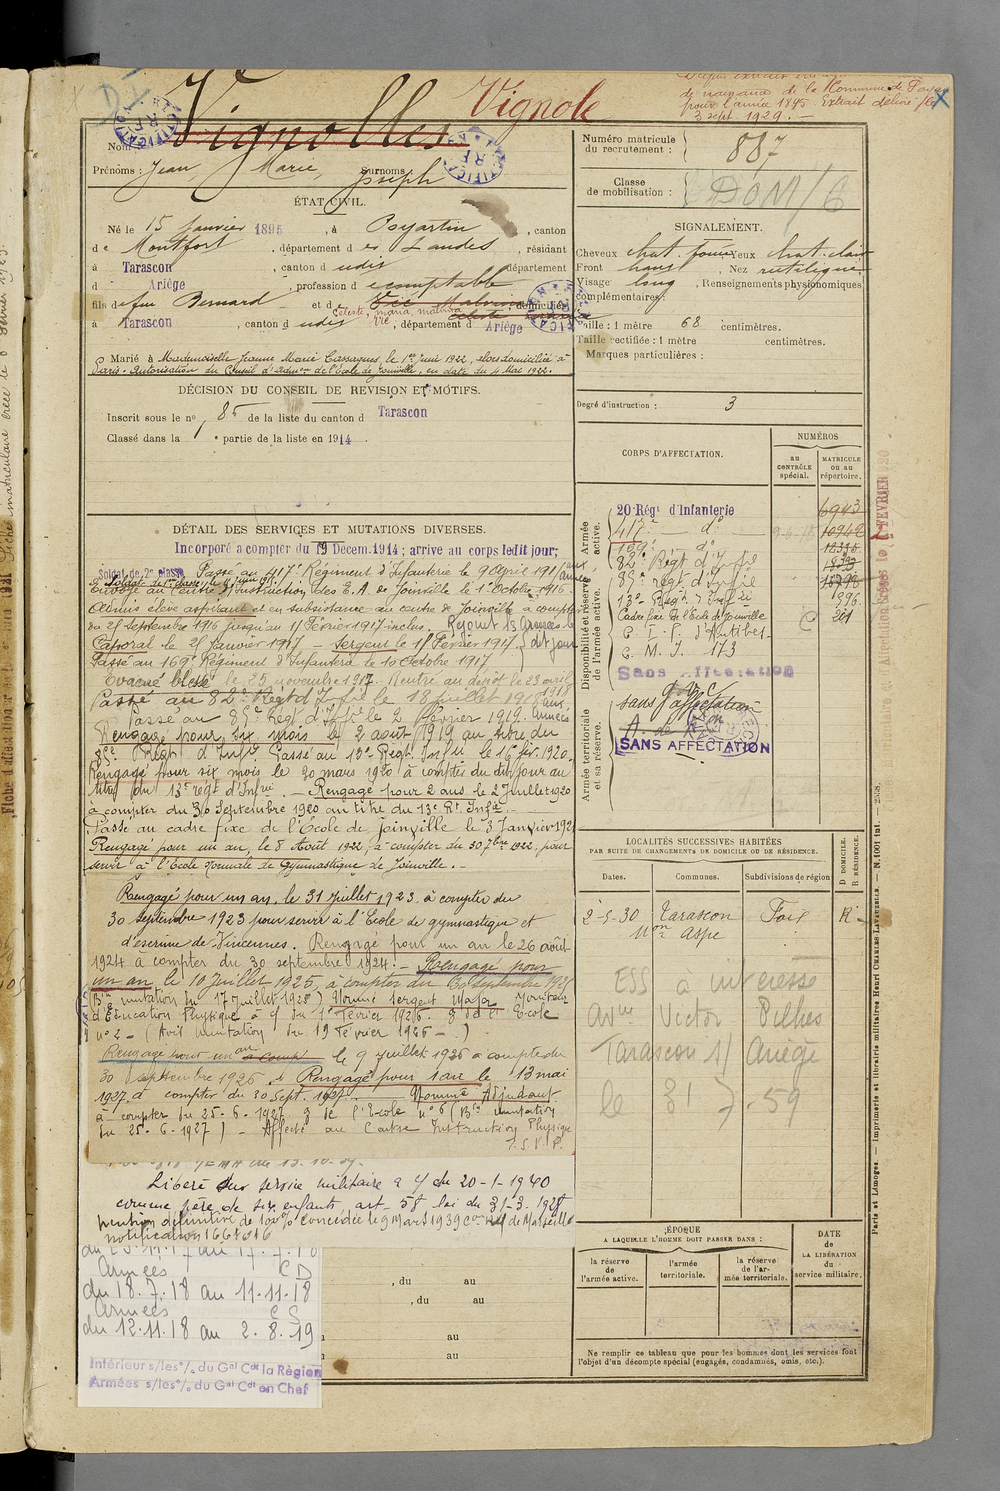 Vignolles Vignole
de naissance de la Commune de
pour l'année 1895. Extrait délivré le
3 sept 1929. —
Nom :
Prénoms : Jean Marie, Surnoms Joseph
ÉTAT CIVIL.
Né le 15 Janvier 1895, à Poyartin, canton
de Montfort, département des Landes, résidant
à Tarascon, canton d udit, département
d Ariège, profession d comptable
fils de feu Bernard et de Vié Malvina, domiciliés
Celeste, maria, Vié
à Tarascon, canton d udit, département d Ariège
Marié à Mademoiselle Jeanne Marie Cassagnes, le 1er Juin 1922, alors domiciliée à
Paris. Autorisation du Conseil d'admon de l'École de Joinville, en date du 4 Mai 1922.
DÉCISION DU CONSEIL DE REVISION ET MOTIFS.
Inscrit sous le no 85 de la liste du canton d Tarascon
Classé dans la 1 e partie de la liste en 1914
DÉTAIL DES SERVICES ET MUTATIONS DIVERSES.
Incorporé a compter du 19 Décem. 1914 ; arrive au corps ledit jour;
Soldat de 2e classe Passé au 417e Régiment d'Infanterie le 9 April 191
Soldat de 1e classe le
Envoyé au Centre d'Instruction des E. A. de Joinville le 1er Octobre 1916.
Admis élève aspirant et en subsistance au centre de Joinville à compter
du 25 septembre 1916 jusqu'au 11 Février 1917 inclus. Rejoint les armées le
Caporal le 25 Janvier 1917 — Sergent le 11 Février 1917 dit jour
Passé au 169e Régiment d'Infanterie le 10 Octobre 1917
Evacué blessé le 25 novembre 1917. Rentré au dépôt le 23 avril 1918
Passé au 82e Regt d'Infie le 18 juillet 1918 aux
Passé au 89e Regt d'Infie le 2 Février 1919. Armées
Rengagé pour six mois le 2 août 1919 au titre du
89e Régt d'Infie. Passé au 13e Regt. Infie le 16 fév. 1920.
Rengagé pour six mois le 20 mars 1920 à compter du dit jour au
titre du 13e régt d'Infie. — Rengagé pour 2 ans le 2 Juillet 1920
à compter du 30 Septembre 1920 au titre du 13e Rt Infie
Passé au cadre fixe de l'École de Joinville le 3 Janvier 192
Rengagé pour un an, le 8 Août 1922 à compter du 30 7bre 1922, pour
servir à l'École Normale de Gymnastique de Joinville. —
Rengagé pour un an, le 31 Juillet 1923 à compter du
30 Septembre 1923 pour servir à l'École de gymnastique et
d'escrime de Vincennes. Rengagé pour un an le 26 août
1924 à compter du 30 septembre 1924. — Rengagé pour
un an le 10 Juillet 1925, à compter du 30 septembre 1925
(Bin mutation du 17 Juillet 1925) Nommé Sergent Major Moniteur
d'Education Physique à c/ du 1er Février 1926. g d e l' Ecole
no 2 — (Avis mutation du 19 Février 1926 — )
Rengagé pour un an à comp le 9 juillet 1926 à compter du
30 septembre 1926. Rengagé pour 1 an le 13 mai
1927 à compter du 30 Sept. 1927. Nommé Adjudant
à compter du 25-6-1927 g de l'Ecole no 6 (Bin mutation
du 25-6-1927) — Affecté au Centre Instruction Physique
T.S.V.P.
Libéré du service militaire à c/ du 20-1-1940
comme père de six enfants art. 58 loi du 31-3-1928
Pension définitive de 100% concédée le 9 Mars 1939 de Marseille
notification 1667816
Armées C D
du 18.7.18 au 11.11.18
Armées C S
du 12.11.18 au 2.8.19
Intérieur s/les o/. du Gal Cdt la Région
Armées s/les o/. du Gal Cdt en Chef
, du au
, du au
au
au
Numéro matricule
du recrutement : 887
Classe
de mobilisation : DOM/6
SIGNALEMENT.
Cheveux chat. foncé Yeux chat. clair
Front haut, Nez rectiligne
Visage long, Renseignements physionomiques
complémentaires :
Taille : 1 mètre 68 centimètres.
Taille rectifiée : 1 mètre centimètres.
Marques particulières :
Degré d'instruction : 3
CORPS D'AFFECTATION.
NUMÉROS
au CONTRÔLE spécial.
MATRICULE ou au répertoire.
Armée active.
Disponibilité et réserve de l'armée active.
Armée territoriale et sa réserve.
20 Régt d'Infanterie 6943
417e do 10942
169e do 12336
82e Régt d'Infie
89e régt d'Infie
13e Régt d'Infie 896
Cadre fixe de l'Ecole de Joinville
C. I. P. d'Antibes
C. M. I. 173
Sans Affectation
sans affectation
SANS AFFECTATION
LOCALITÉS SUCCESSIVES HABITÉES
PAR SUITE DE CHANGEMENTS DE DOMICILE OU DE RÉSIDENCE.
Dates. Communes. Subdivisions de région
D DOMICILE. R RÉSIDENCE.
2-5-30 Tarascon Foix R
Mon Aspe
ESS à intéressé
Avue Victor Pilhes
Tarascon s/ Ariège
le 31 7-59
ÉPOQUE
A LAQUELLE L'HOMME DOIT PASSER DANS :
la réserve de l'armée active.
l'armée territoriale.
la réserve de l'armée territoriale.
DATE de LA LIBÉRATION du service militaire.
Ne remplir ce tableau que pour les hommes dont les services font
l'objet d'un décompte spécial (engagés, condamnés, omis, etc.).
Paris et Limoges. — Imprimerie et librairie militaires Henri CHARLES-LAVAUZELLE. — N. 1001 int. — 2358.